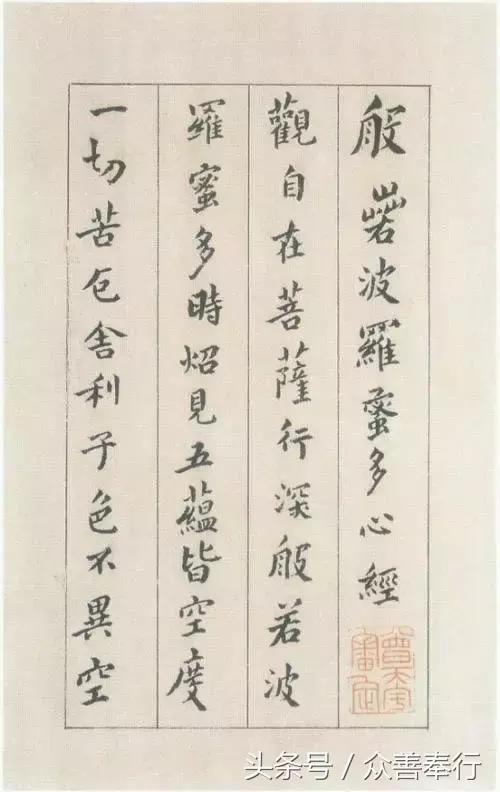 般若波羅蜜多心經
觀自在菩薩行深般若波
羅蜜多時炤見五蘊皆空度
一切苦厄舍利子色不異空
头条号 / 众善奉行